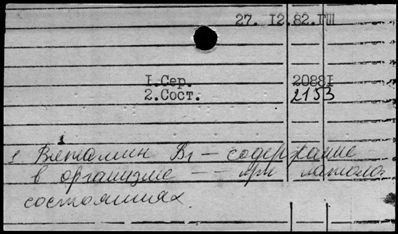 27. 12.82.ГШ
1.Сер. 20881
2.Сост. 2153
Витамин В₁ — содержание
в организме — при патолог.
состояниях.